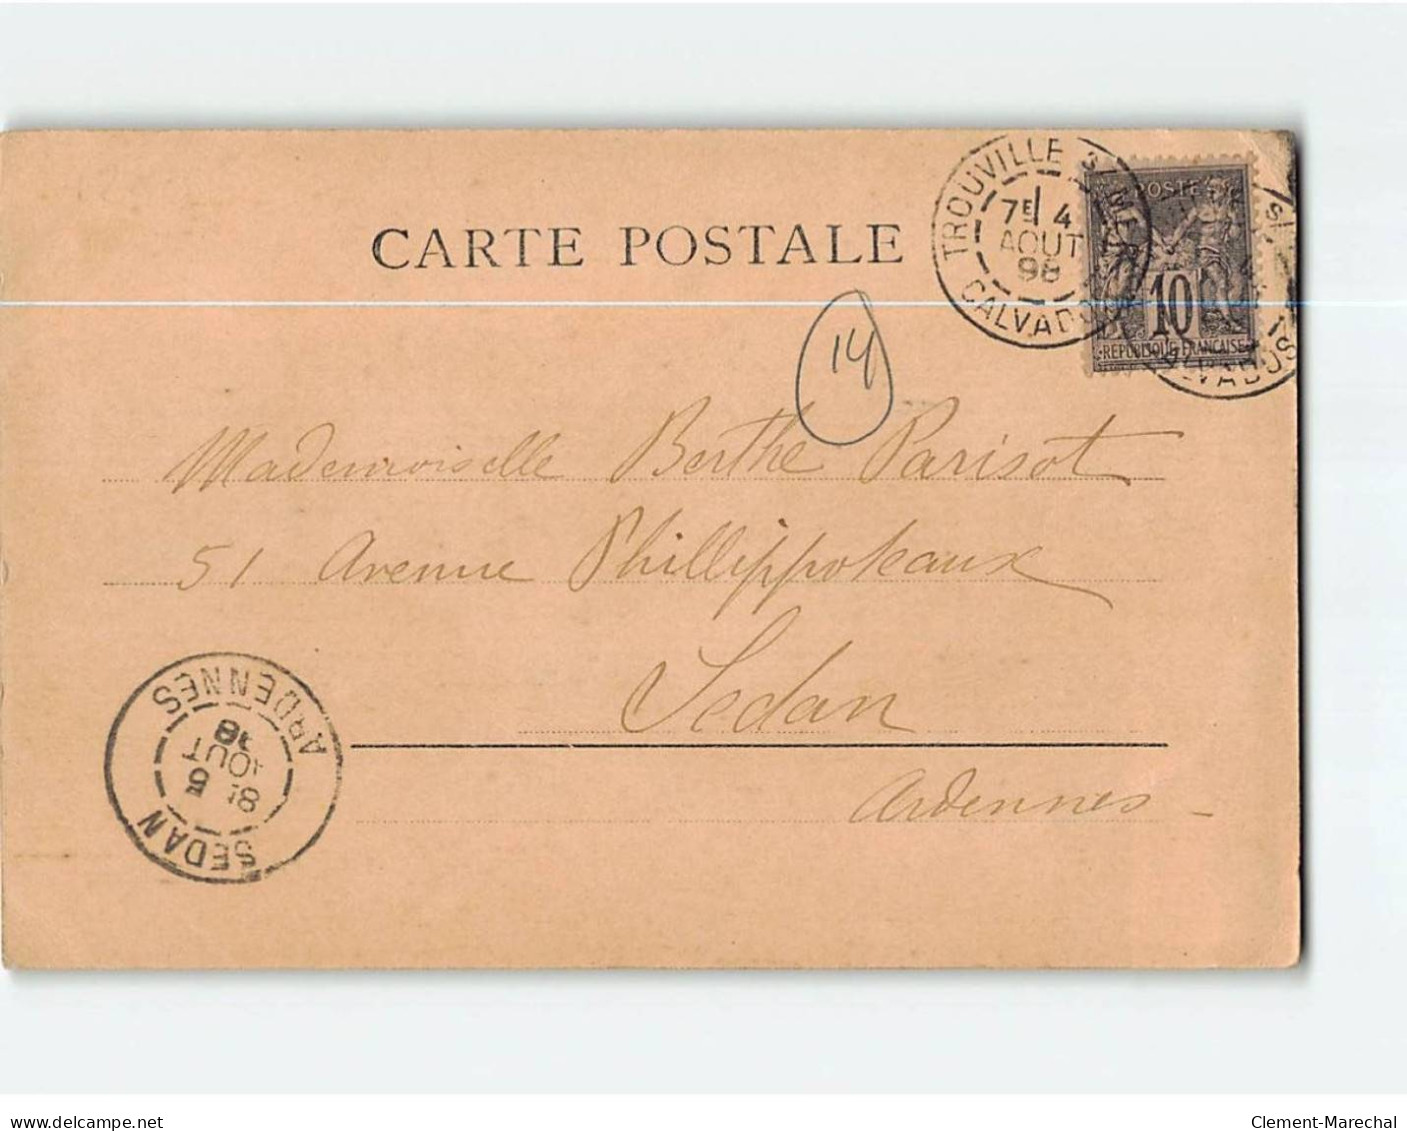 TROUVILLE S/MER
7E 4
AOUT
98
CALVADOS
POSTES
10
REPUBLIQUE FRANCAISE
CALVADOS
CARTE POSTALE
14
Mademoiselle Berthe Parisot
51 Avenue Phillippoteaux
Sedan
Ardennes -
SEDAN
8E 5
AOUT
98
ARDENNES
www.delcampe.net
Clement-Marechal